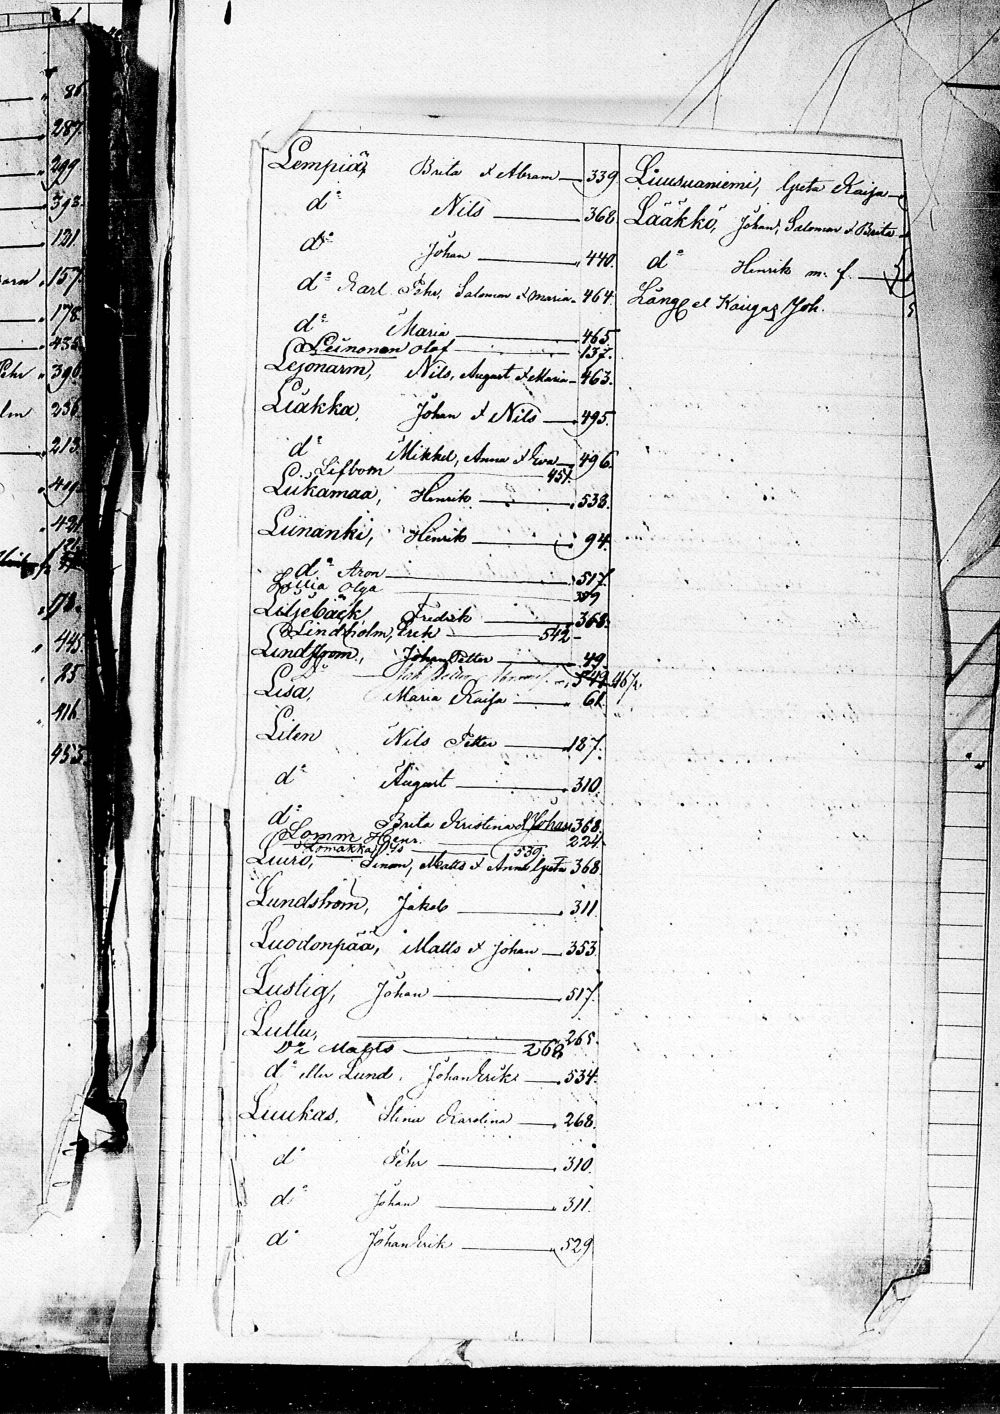 86
287.
299
393.
121
157.
178.
435
Pehr 396
256
213.
419
421
178.
445
25
416
453.
Lempiä, Brita & Abram 339.
d:o Nils 368
d:o Johan 440.
d:o Karl Pehr, Salomon & Maria 464.
d:o Maria 465.
Leinonen Olof 137.
Lejonarm, Nils, August & Maria 463.
Liakka, Johan & Nils 495.
d:o Mikkel, Anna & Eva 496.
Lifbom 457.
Liikamaa, Henrik 538.
Liinanki, Henrik 94.
d:o Aron 517.
Lilja Olga 389
Liljebäck Fredrik 368.
Lindholm, Erik 542
Lindstrom, Johan Petter 49.
467.
Lisa, Maria Kaisa 61.
Liten Nils Petter 187.
d:o August 310.
d:o Brita Kristina & Johan 368.
Lomm Henr. 224.
Lomakka 539.
Luiro, Simon, Matts & Anna Greta 368
Lundstrom, Jakob 311.
Luodonpää, Matts & Johan 353.
Lustig, Johan 517.
Luttu, 265.
D:o Matts 268
d:o eller Lund, Johan Erik 534.
Luukas, Stina Karolina 268.
d:o Pehr 310.
d:o Johan 311.
d:o Johan Erik 529.
Liuusuaniemi, Greta Kaisa
Lääkkö, Johan, Salomon & Brita
d:o Henrik m. f.
Lång el Kangas Joh.